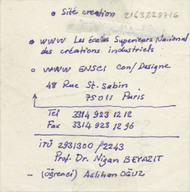 • Site creation 2163223716
• WWW Les Ecoles Superieurs National
des créations industriels
• WWW ENSCI Con/Designe
48 Rue St-Sabin
75011 Paris
Tel 3314 923 12 12
Fax 3314 923 12 96
İTÜ 2931300 /2243
Prof. Dr. Nigan BEYAZIT
— (öğrenci) Aslıhan OĞUZ